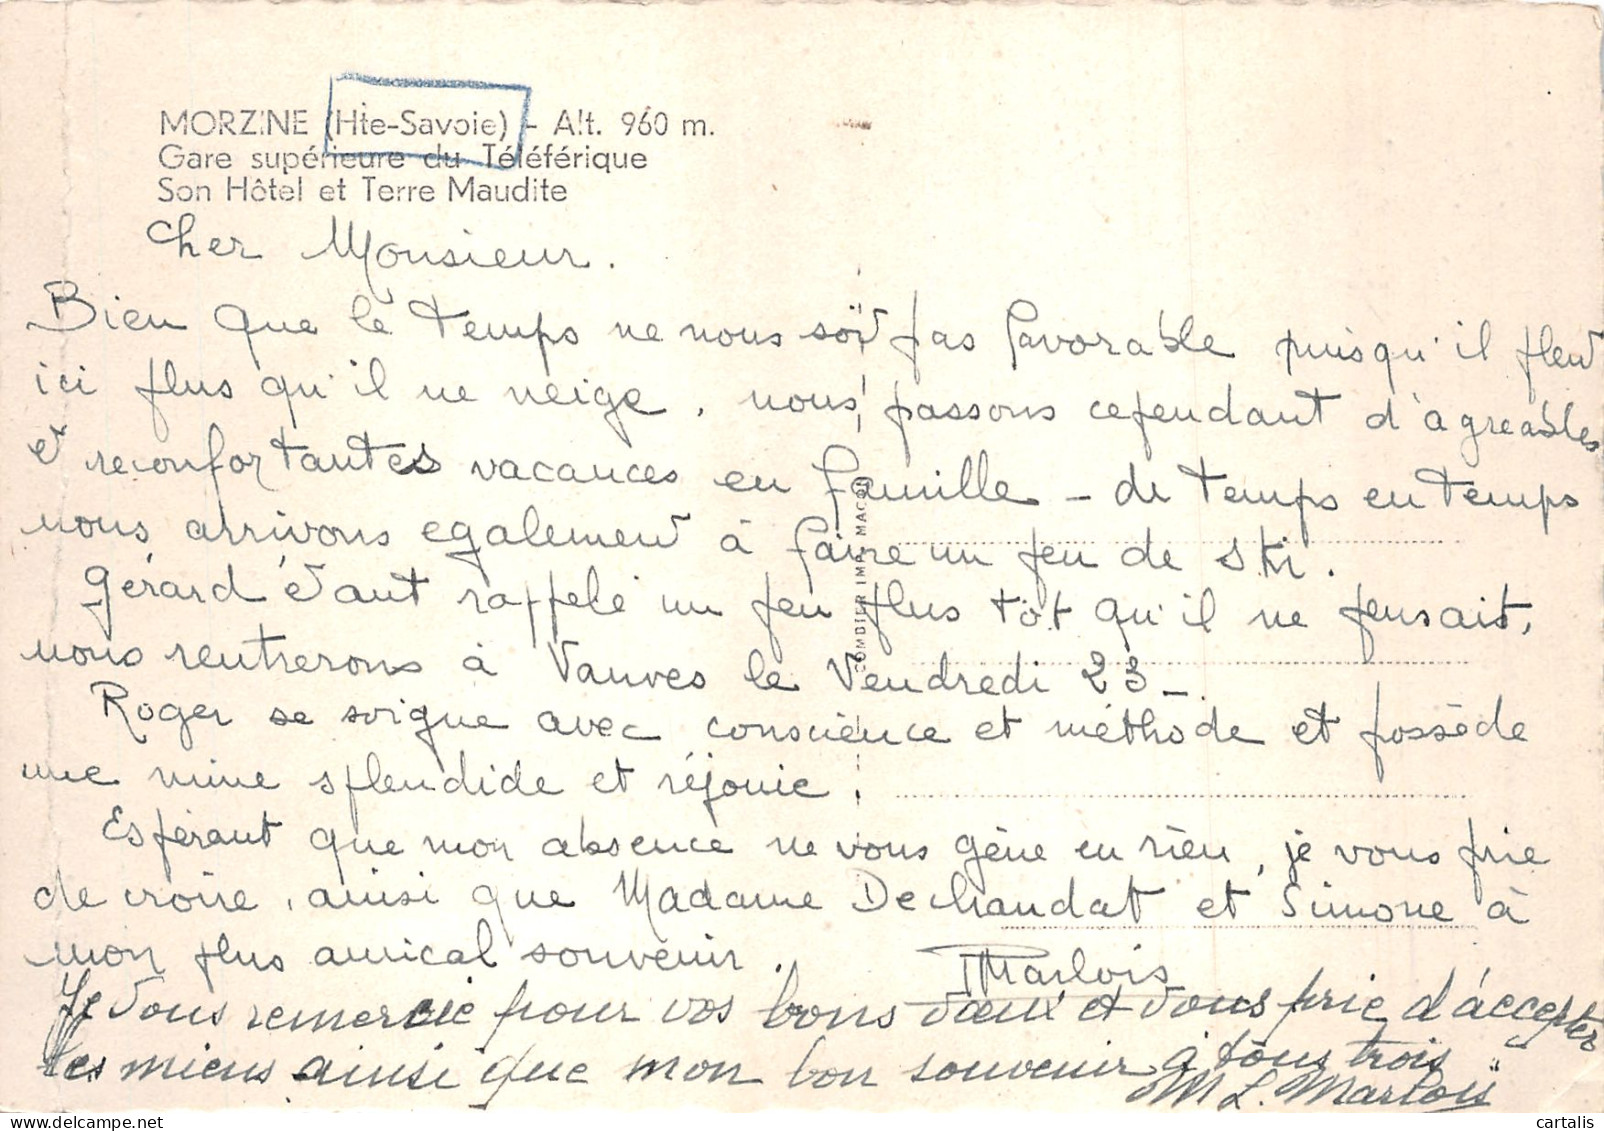 MORZINE (Hte-Savoie) - Alt. 960 m.
Gare supérieure du Téléférique
Son Hôtel et Terre Maudite
Cher Monsieur.
Bien que le temps ne nous soit pas favorable puisqu'il pleut
ici plus qu'il ne neige, nous passons cependant d'agreables
et reconfortantes vacances en famille - de temps en temps
nous arrivons egalement à faire un peu de ski.
Gérard étant rappelé un peu plus tôt qu'il ne pensait,
nous rentrerons à Vanves le Vendredi 23 -
Roger se soigne avec conscience et méthode et possède
une mine splendide et réjouie.
Espérant que mon absence ne vous gène en rien, je vous prie
de croire, ainsi que Madame Dechandat et Simone à
mon plus amical souvenir.
Marlois
Je vous remercie pour vos bons vœux et vous prie d'accepter
les miens ainsi que mon bon souvenir à tous trois
M L. Marlois
COMBIER IMP. MACON
cartalis
delcampe.net